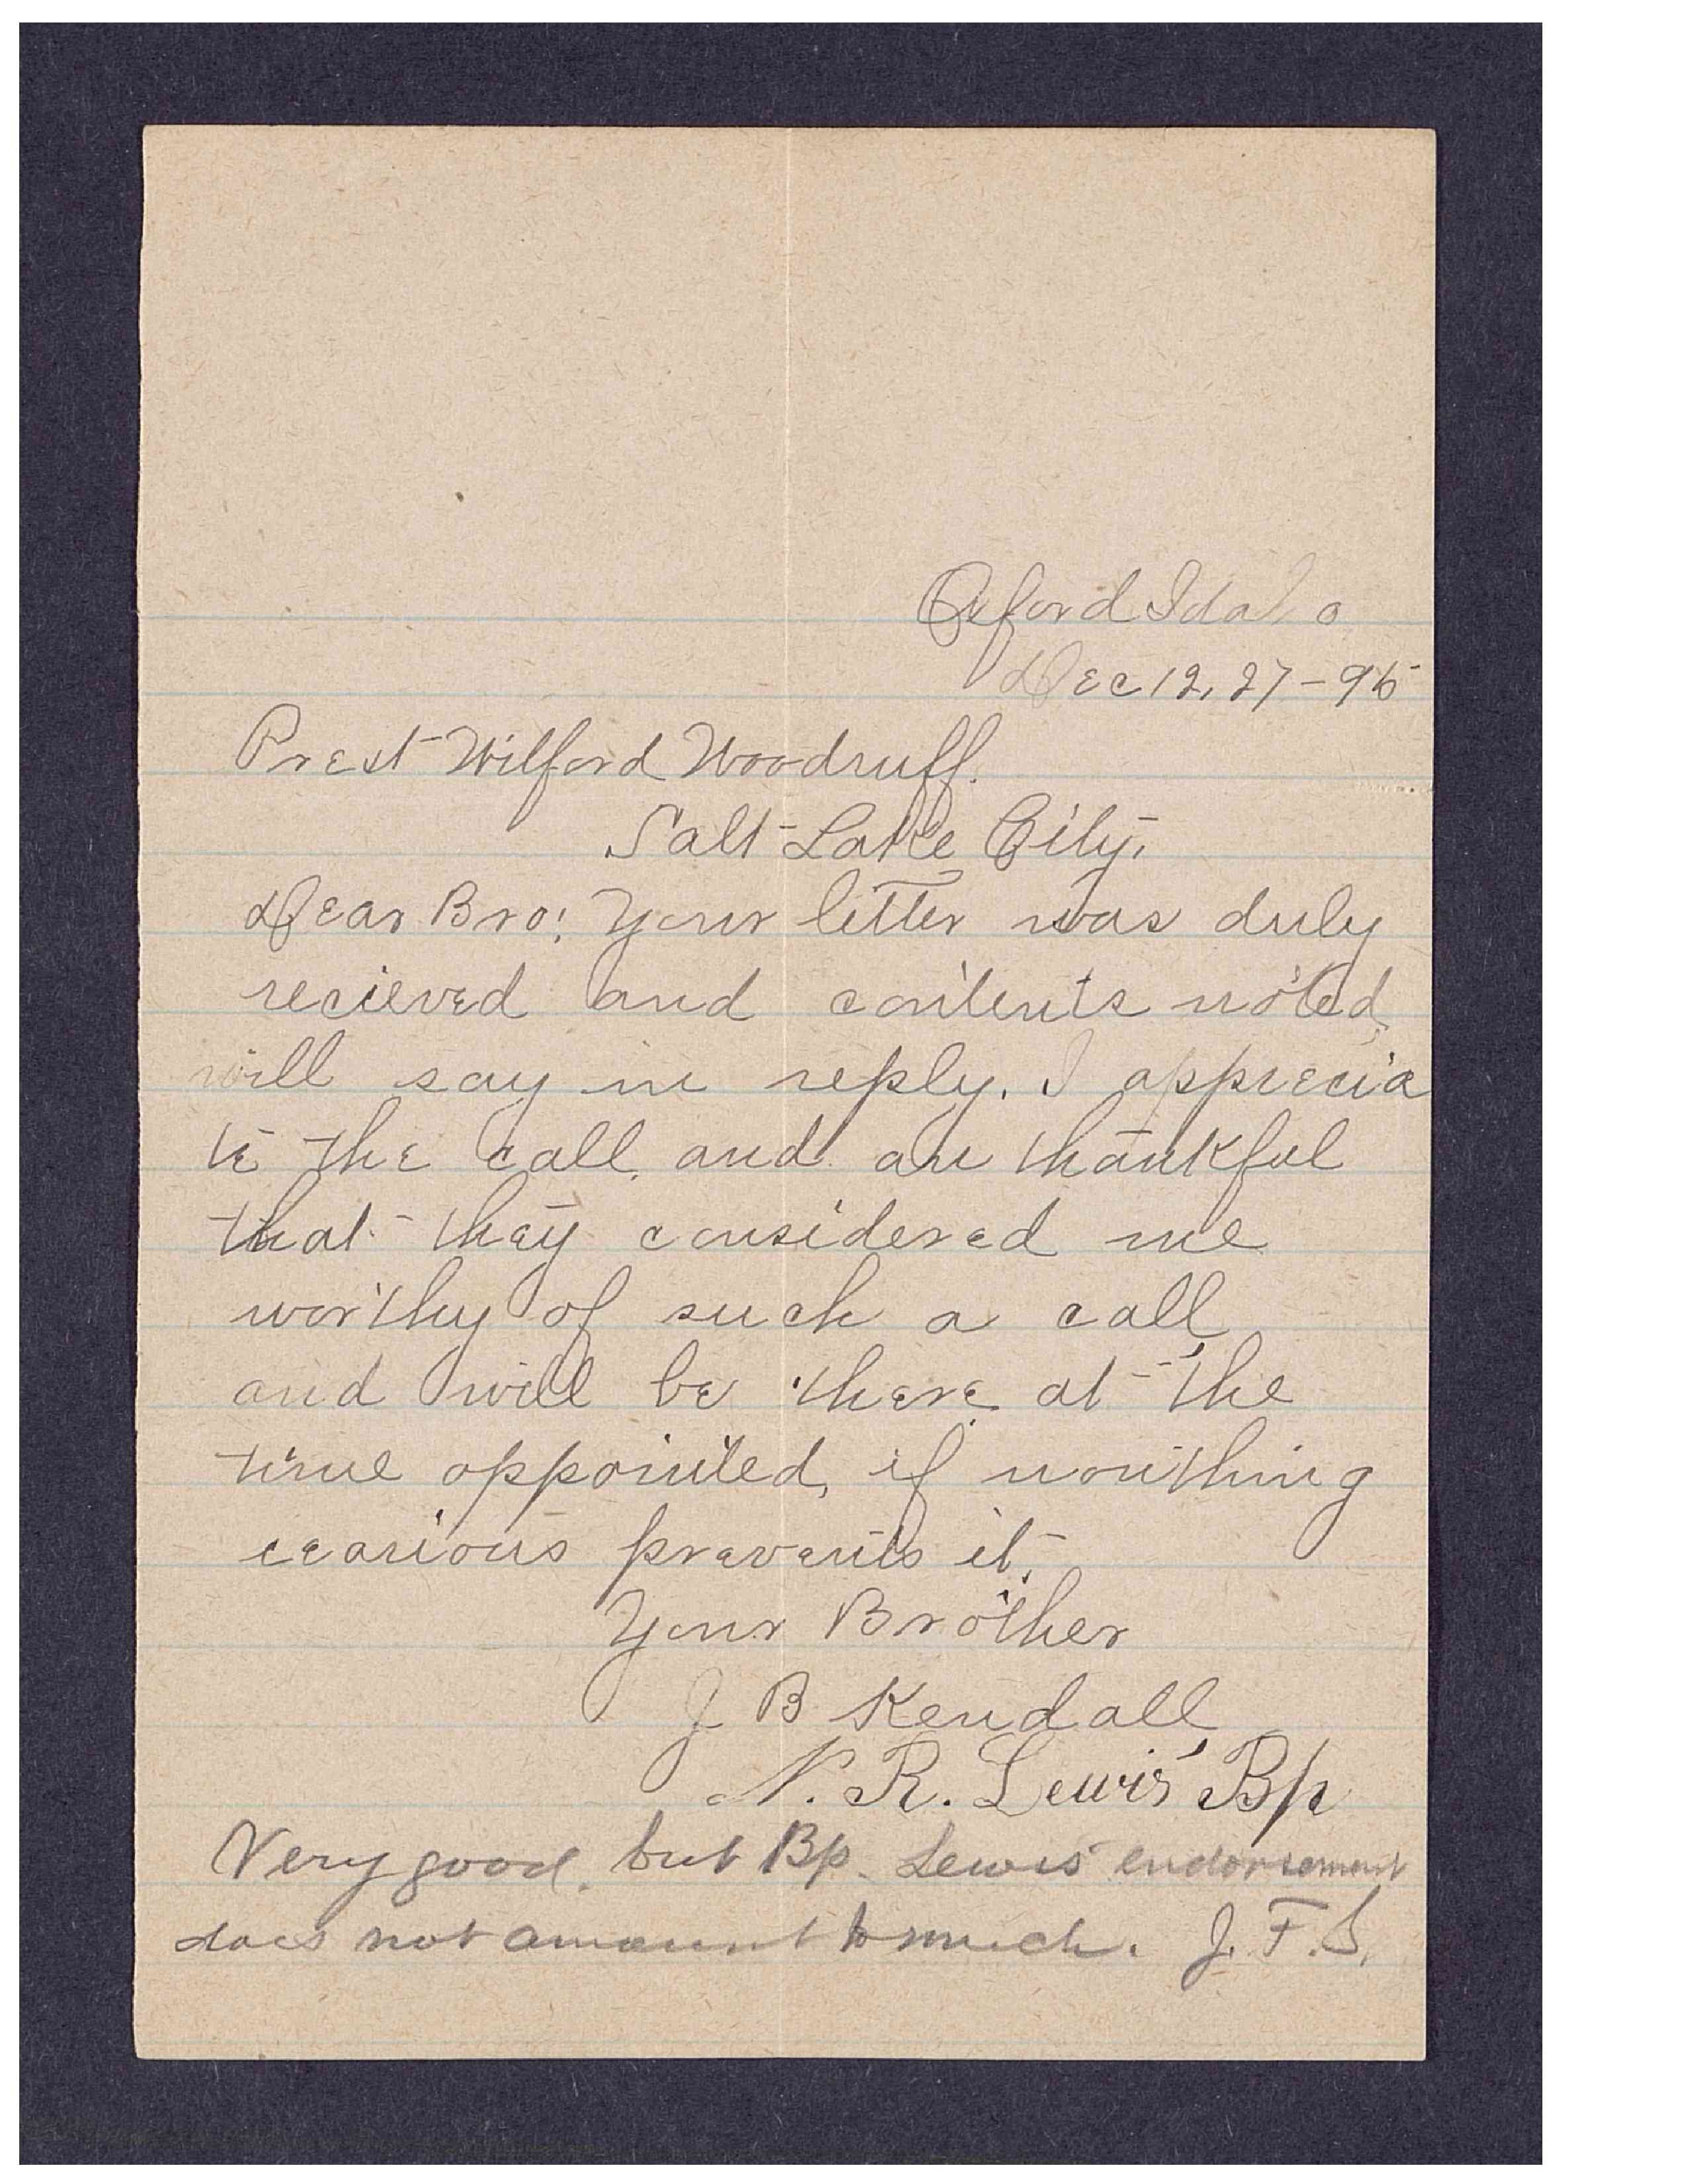 Oxford Idaho
Dec 12, 27-95
Prest Wilford Woodruff.
Salt Lake City,
Dear Bro; Your letter was duly
recieved and contents noted,
will say in reply. I apprecia
te the call, and am thankful
that they considered me
worthy of such a call,
and will be there at the
time appointed, if nonthing
cearious prevents it.
Your Brother
J B Kendall
N. R. Lewis Bp
Very good. but Bp. Lewis endorsement
does not amount to much. J. F. S.